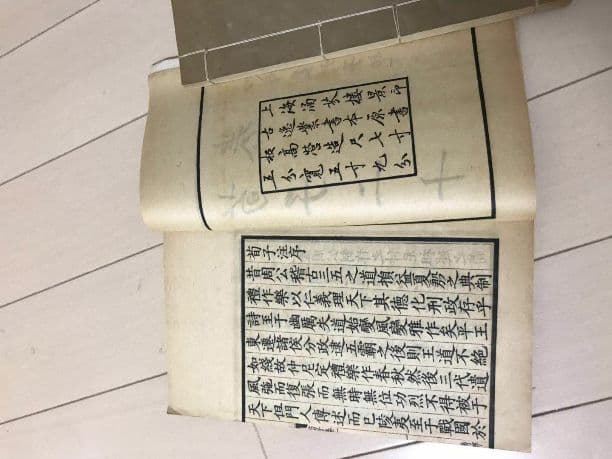 上海涵芬樓景印
古逸叢書本原書
板高營造尺七寸
五分寬五寸九分
荀子注序
昔周公稽古三五之道損益夏殷之典制
禮作樂以仁義理天下其德化刑政存乎
詩至于幽厲失道始變風變雅作矣平王
東遷諸侯力政逮五霸之後則王道不絕
如綫故仲尼定禮樂作春秋然後三代遺
風弛而復張而無時無位功烈不得被于
天下但門人傳述而已陵夷至于戰國於